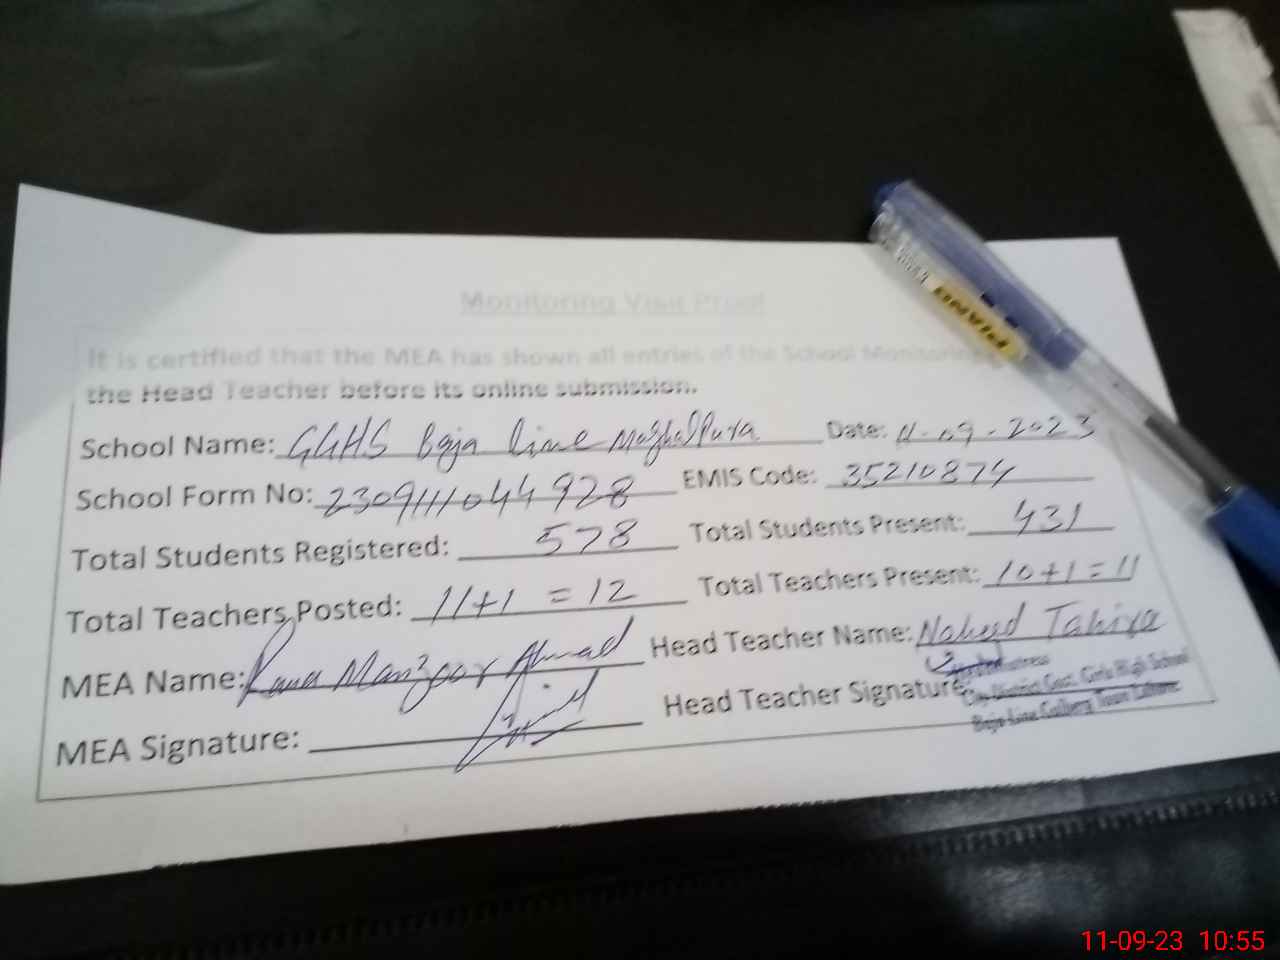 Monitoring Visit Proof
It is certified that the MEA has shown all entries of the School Monitoring
the Head Teacher before its online submission.
School Name: GGHS Baja Line Mughalpura Date: 11-09-2023
School Form No: 230911044928 EMIS Code: 35210874
Total Students Registered: 578 Total Students Present: 431
Total Teachers Posted: 11+1 = 12 Total Teachers Present: 10+1=11
MEA Name: Rana Manzoor Ahmad Head Teacher Name: Naheed Tahira
MEA Signature: Head Teacher Signature:
Headmistress
City District Govt. Girls High School
Baja Line Gulberg Town Lahore
PIANO
11-09-23 10:55